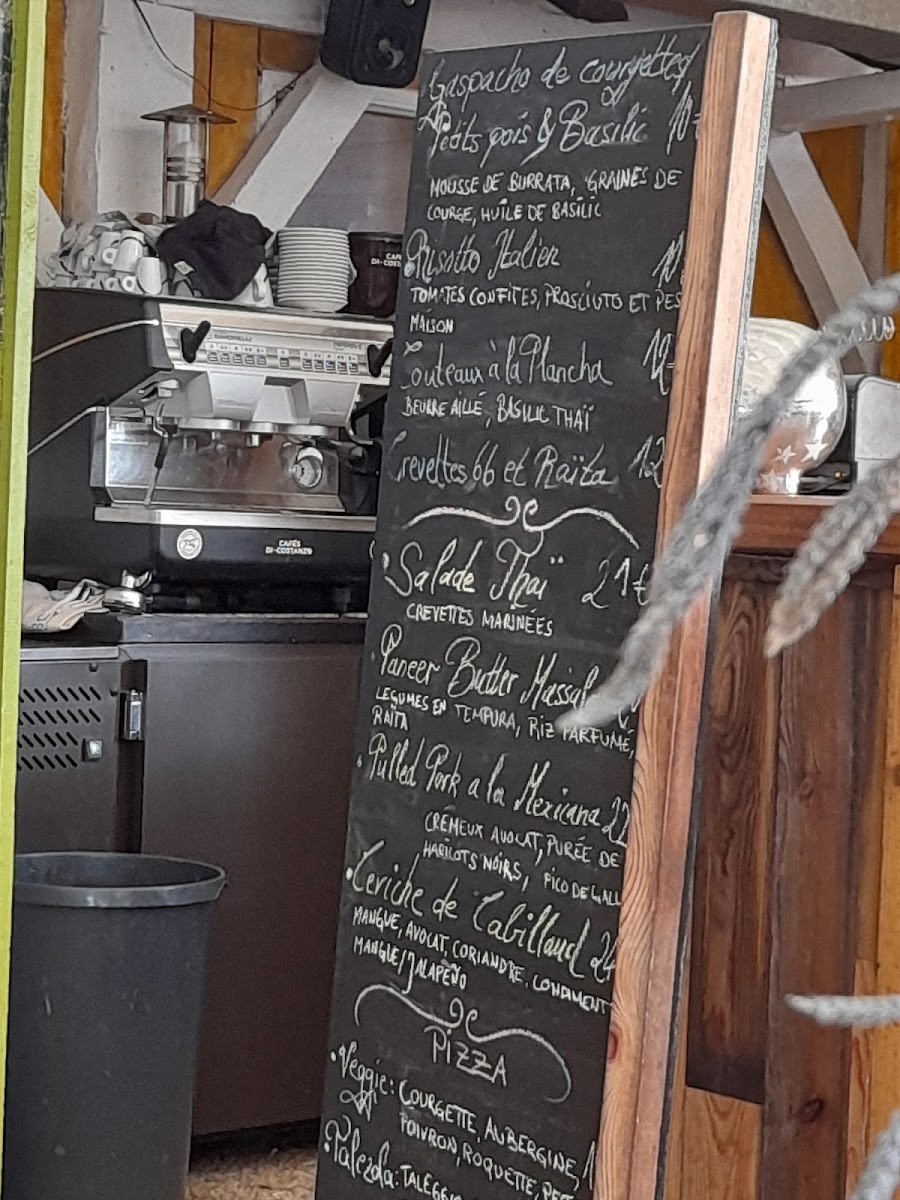 Gaspacho de courgettes,
Petits pois & Basilic 10
MOUSSE DE BURRATA, GRAINES DE
COURGE, HUILE DE BASILIC
Risotto Italien 11
TOMATES CONFITES, PROSCIUTO ET PES
MAISON
Couteaux à la Plancha 12
BEURRE AILLÉ, BASILIC THAÏ
Crevettes 66 et Raïta 12
Salade Thaï 21€
CREVETTES MARINÉES
Paneer Butter Massal
LEGUMES EN TEMPURA, RIZ PARFUMÉ,
RAÏTA
Pulled Pork a la Mexicana 22
CRÉMEUX AVOCAT, PURÉE DE
HARICOTS NOIRS, PICO DE GALL
Ceviche de Cabillaud 24
MANGUE, AVOCAT, CORIANDRE, CONDIMENT
MANGUE/JALAPEÑO
PIZZA
Veggie: COURGETTE, AUBERGINE, 1
POIVRON, ROQUETTE, PES
Talezda: TALEGGIO
CAFÉS
DI-COSTANZO
CAFÉ
DI-COSTA
SANREMO